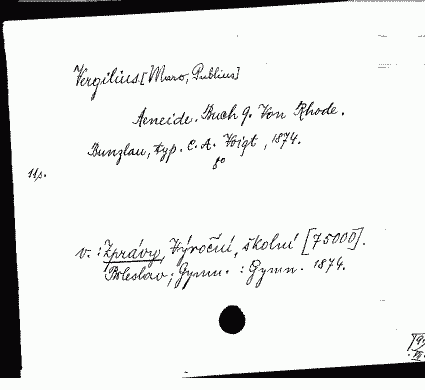 Vergilius [Maro, Publius]
Aeneide. Buch 9. Von Rhode.
Bunzlau, typ. C. A. Voigt, 1874.
8o
11p.
v.: Zprávy, Výroční, školní [75000].
Boleslav; Gymn. : Gymn. 1874.